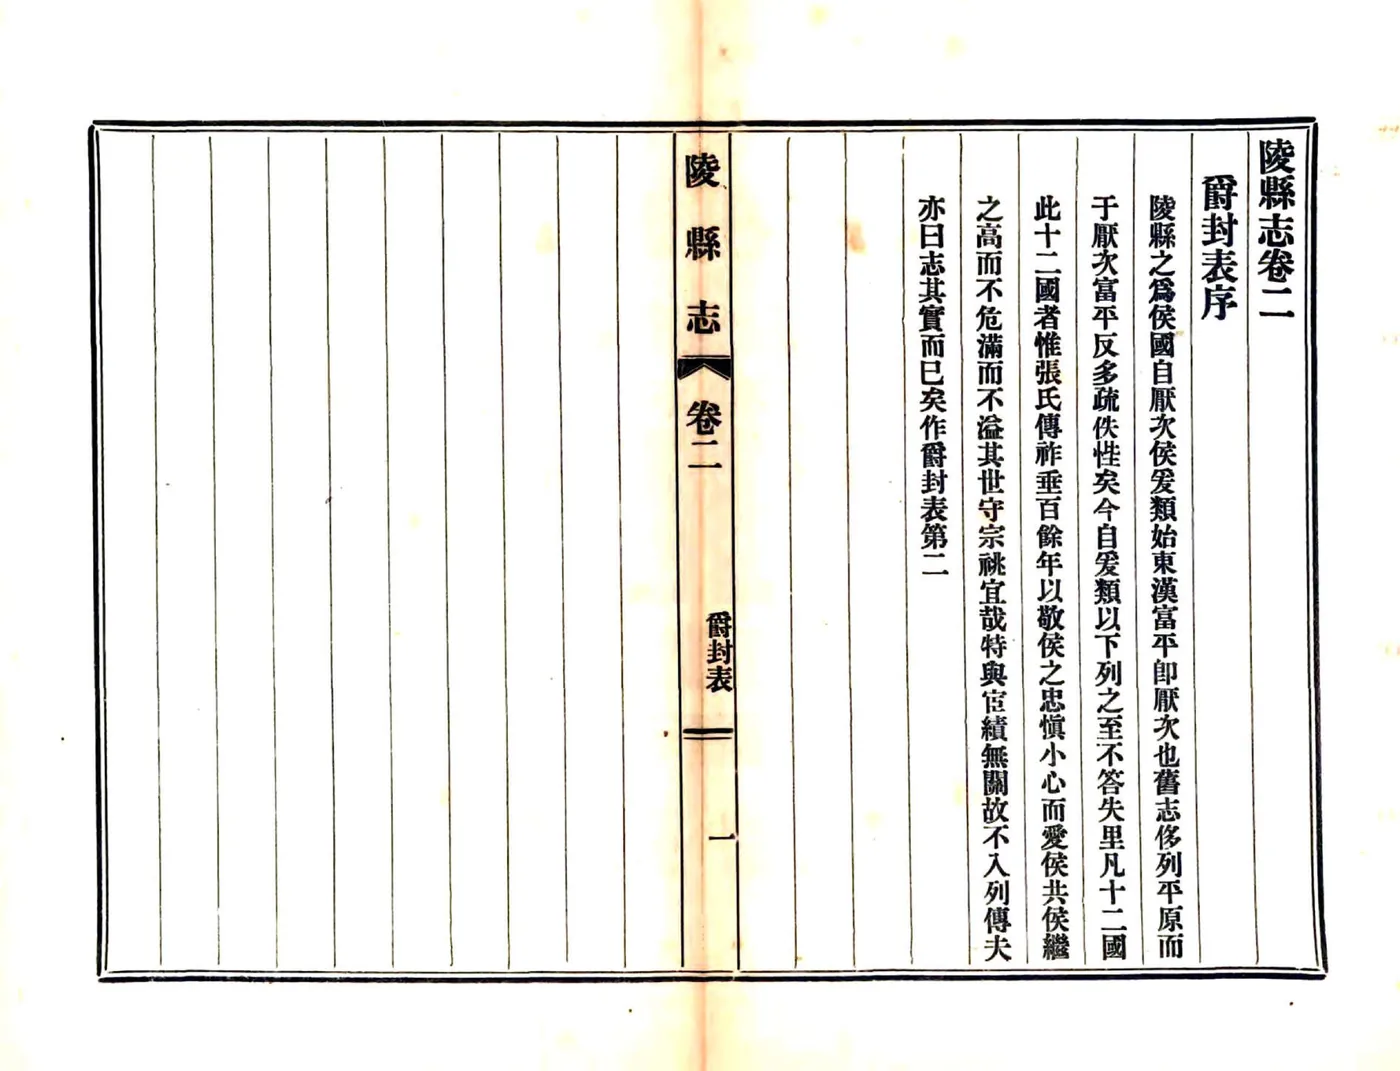 陵縣志卷二
爵封表序
陵縣之爲侯國自厭次侯爰類始東漢富平卽厭次也舊志侈列平原而
于厭次富平反多疏佚性矣今自爰類以下列之至不答失里凡十二國
此十二國者惟張氏傳祚垂百餘年以敬侯之忠愼小心而愛侯共侯繼
之高而不危滿而不溢其世守宗祧宜哉特與宦績無關故不入列傳夫
亦曰志其實而已矣作爵封表第二
陵縣志
卷二
爵封表
一